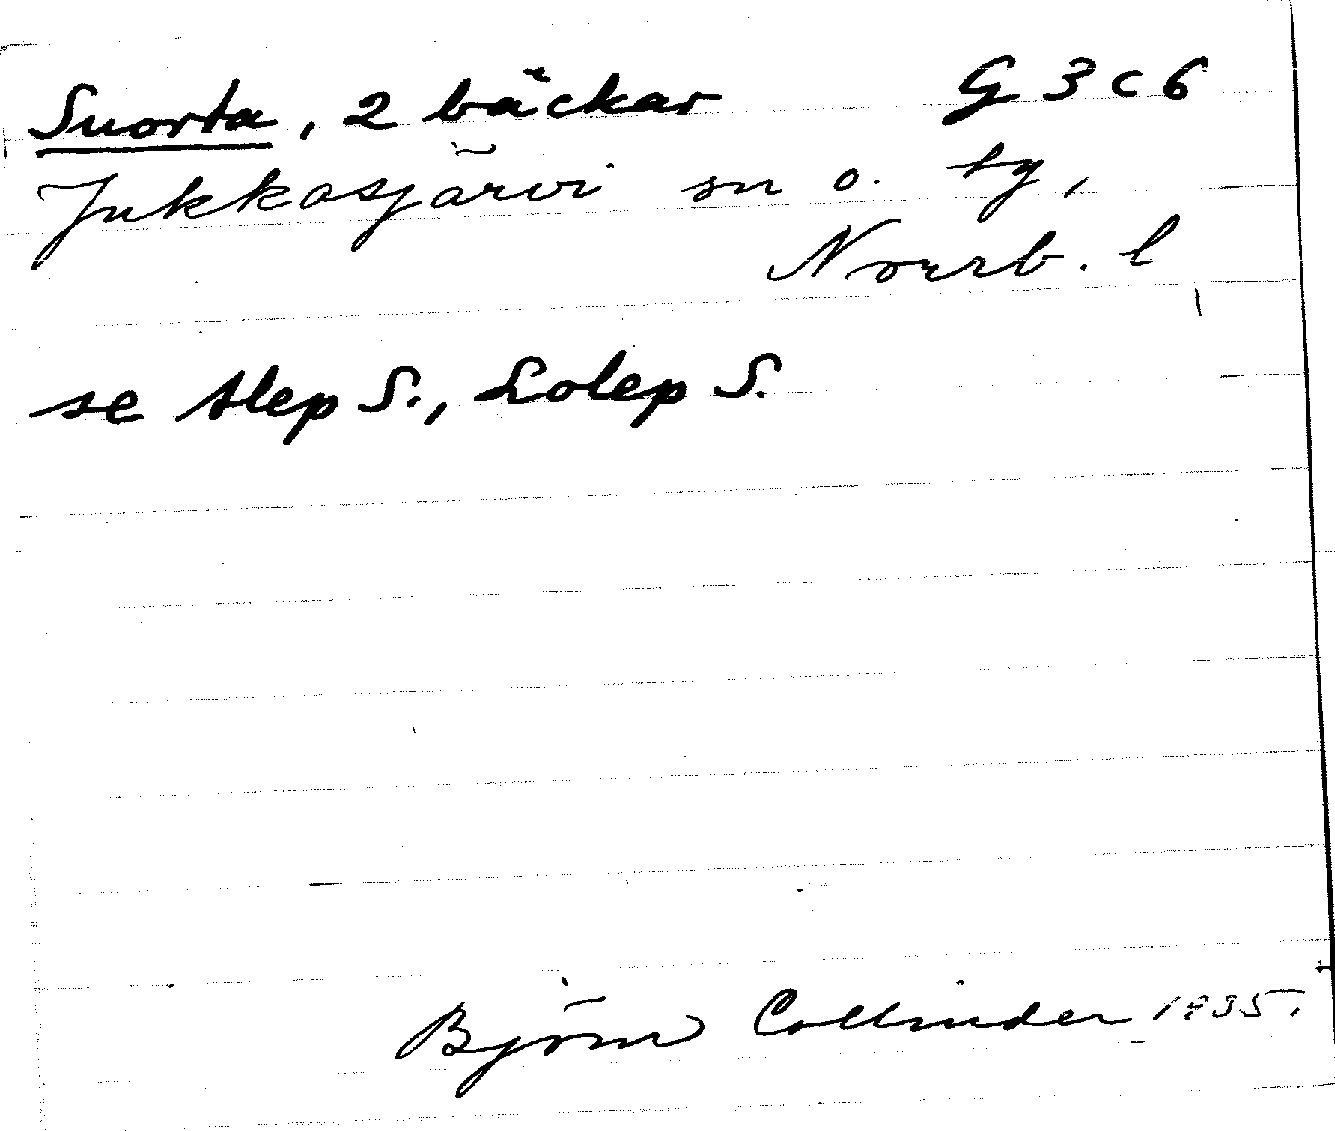 Suorta, 2 bäckar G 3 c 6
Jukkasjärvi sn o. tg,
Norrb. l
se Alep S., Lolep S.
Björn Collinder 1935.